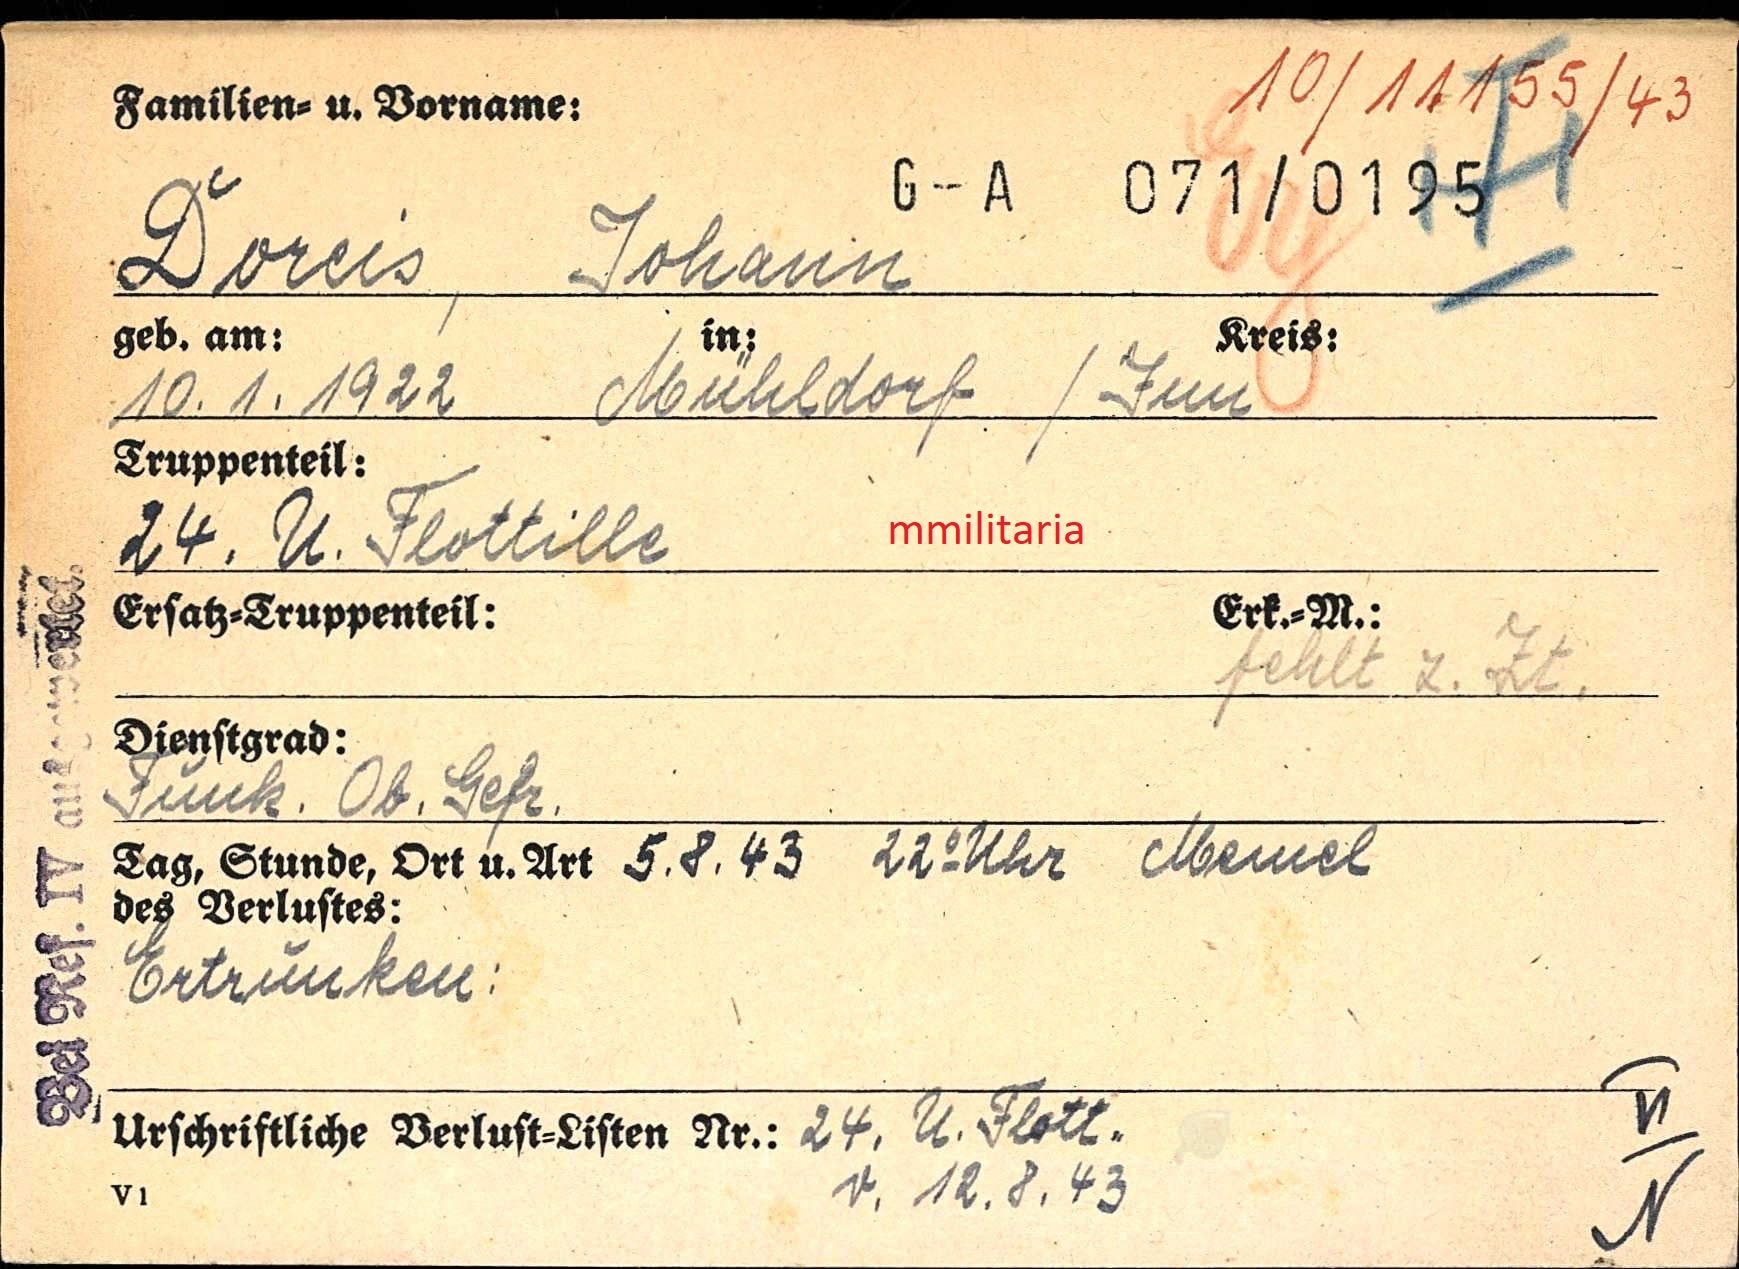 10/11155/43
Familien- u. Vorname:
G-A 071/0195
Doreis, Johann
geb. am: in: Kreis:
10. 1. 1922 Mühldorf / Inn
Truppenteil:
24. U. Flottille
mmilitaria
Ersatz-Truppenteil: Erk.-M.:
fehlt z. Zt.
Dienstgrad:
Funk. Ob. Gefr.
Tag, Stunde, Ort u. Art 5. 8. 43 22º Uhr Memel
des Verlustes:
Ertrunken:
Urschriftliche Verlust-Listen Nr.: 24. U. Flott.
v. 12. 8. 43
V 1
VI
N
Bei Ref. IV ausgewertet.